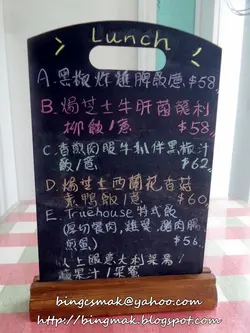 Lunch
A. 黑椒炸雞髀飯/意 $58
B. 焗芝士牛肝菌龍利
柳飯/意 $58
C 香煎肉眼牛扒伴黑椒汁
飯/意 $62
D. 焗芝士西蘭花杏菇
素鴨飯/意 $60
E. Truehouse特式飯
(厚切餐肉,雞翼,豬肉腸
煎蛋) $56
以上跟意大利菜湯/
蘋果汁/果茶
bingcsmak@yahoo.com
http://bingmak.blogspot.com